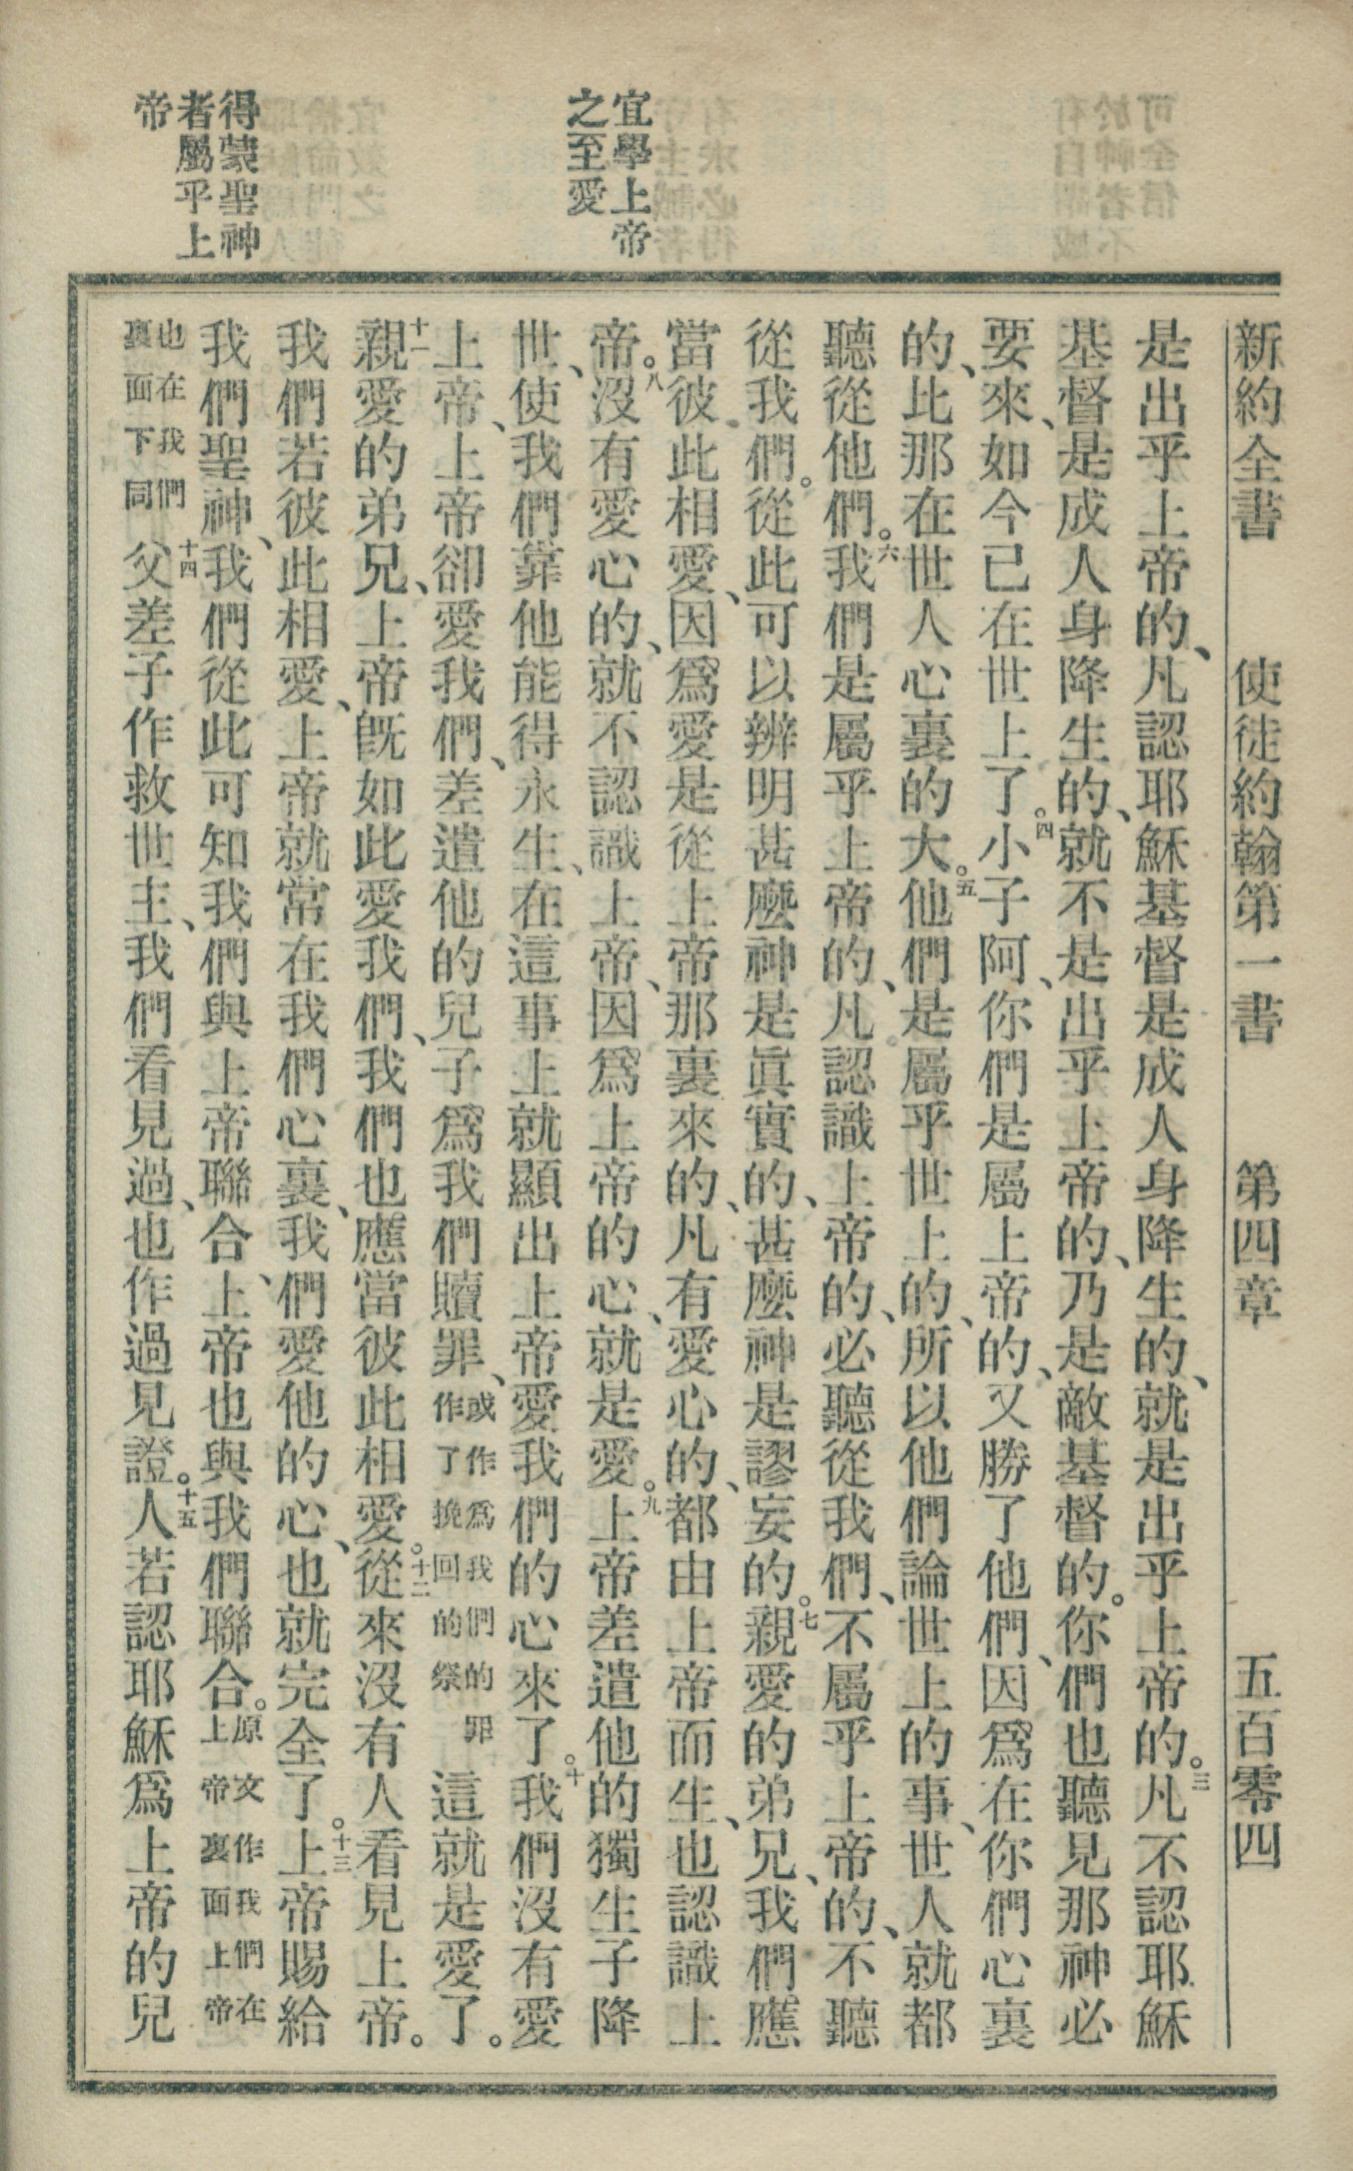 新約全書 使徒約翰第一書 第四章 五百零四
宜學上帝
之至愛
得蒙聖神
者屬乎上
帝
是出乎上帝的、凡認耶穌基督是成人身降生的、就是出乎上帝的。三凡不認耶穌
基督是成人身降生的、就不是出乎上帝的、乃是敵基督的。你們也聽見那神必
要來、如今已在世上了。四小子阿、你們是屬上帝的、又勝了他們、因爲在你們心裏
的、比那在世人心裏的大。五他們是屬乎世上的、所以他們論世上的事、世人就都
聽從他們。六我們是屬乎上帝的、凡認識上帝的、必聽從我們、不屬乎上帝的、不聽
從我們。從此可以辨明甚麼神是眞實的、甚麼神是謬妄的。七親愛的弟兄、我們應
當彼此相愛、因爲愛是從上帝那裏來的、凡有愛心的、都由上帝而生、也認識上
帝。八沒有愛心的、就不認識上帝、因爲上帝的心、就是愛。九上帝差遣他的獨生子降
世、使我們靠他能得永生、在這事上就顯出上帝愛我們的心來了。十我們沒有愛
上帝、上帝卻愛我們、差遣他的兒子爲我們贖罪、或作爲我們的罪作了挽回的祭這就是愛了。
十一親愛的弟兄、上帝旣如此愛我們、我們也應當彼此相愛。十二從來沒有人看見上帝。
我們若彼此相愛、上帝就常在我們心裏、我們愛他的心、也就完全了。十三上帝賜給
我們聖神、我們從此可知我們與上帝聯合、上帝也與我們聯合。原文作我們在上帝裏面上帝
也在我們裏面下同十四父差子作救世主、我們看見過、也作過見證。十五人若認耶穌爲上帝的兒